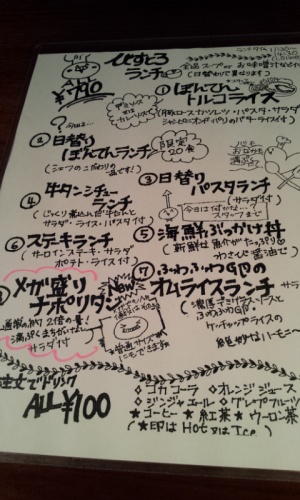 びすとろ
ランチ
ALL
ランチタイム 11:30~
全品スープ or お味噌汁など付
(日替わりで異なります)
① ぼんてん
トルコライス
デミソース
又は
カレーソース
② 日替り
ぼんてんランチ
限定
20食
(シェフのこだわりの一品です!)
③ 日替り
パスタランチ
(サラダ付)
今日は何かな…
スタッフまで
心も
おなかも
満ぷく
④ 牛タンシチュー
ランチ
(じっくり煮込んだ牛タンと
サラダ・ライス・パスタ付)
⑤ 海鮮ぶっかけ丼
(新鮮な魚介がたっぷり
わさび醤油で)
⑥ ステーキランチ
(サーロインステーキ・サラダ
ポテト・ライス付)
⑦ ふわふわ卵の
オムライスランチ
(濃厚デミグラスソースと
ふわふわ卵、
ケチャップライスの
絶妙なハーモニー
メガ盛り
ナポリタン
New
通常の約2倍の量!
満ぷくまちがいなし
サラダ付
普通サイズ
もできます
注文でドリンク
ALL ¥100
◇コカコーラ ◇オレンジジュース
◇ジンジャエール ◇グレープフルーツ
★コーヒー ★紅茶 ★ウーロン茶
(★印は Hot 又は Ice)